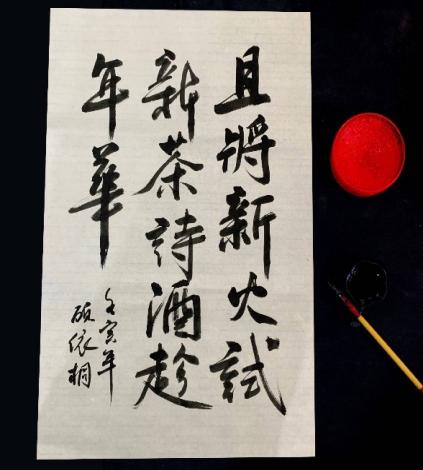 且將新火試
新茶詩酒趁
年華
壬寅年
頋依桐